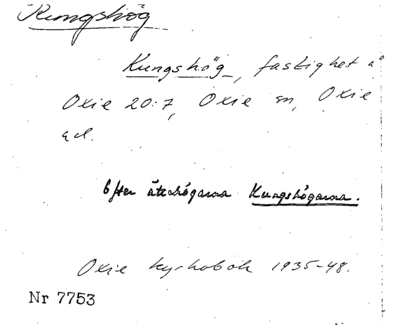 Kungshög
Kungshög, fastighet å
Oxie 20:7, Oxie sn, Oxie
hd.
Efter ättehögarna Kungshögarna.
Oxie kyrkobok 1935-48.
Nr 7753